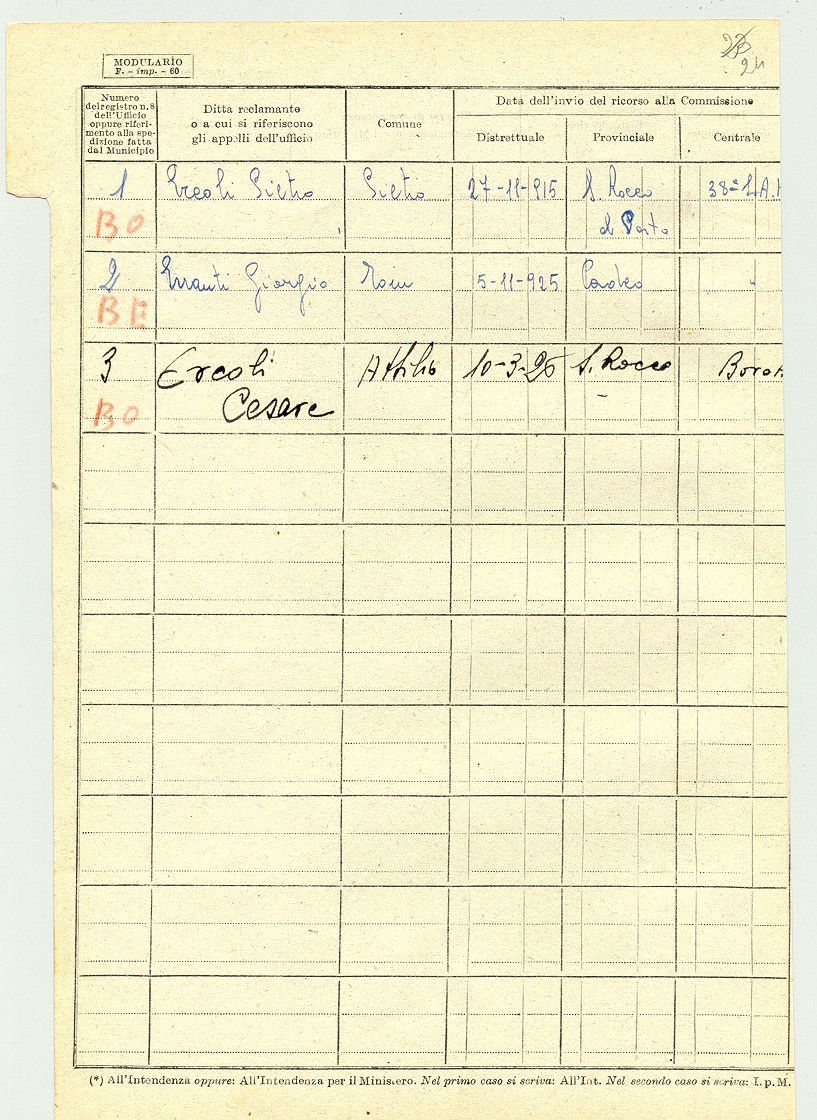 23
24
MODULARIO
F. - imp. - 60
Numero
del registro n. 8
dell'Ufficio
oppure riferi-
mento alla spe-
dizione fatta
dal Municipio
Ditta reclamante
o a cui si riferiscono
gli appelli dell'ufficio
Comune
Data dell'invio del ricorso alla Commissione
Distrettuale
Provinciale
Centrale
1 Ercoli Pietro Pietro 27-11-915 S. Rocco 38ª
BO al Porto
2 Erranti Giorgio 5-11-925 "
BE
3 Ercoli Attilio 10-3-26 S. Rocco
BO Cesare
(*) All'Intendenza oppure: All'Intendenza per il Ministero. Nel primo caso si scriva: All'Int. Nel secondo caso si scriva: I. p. M.